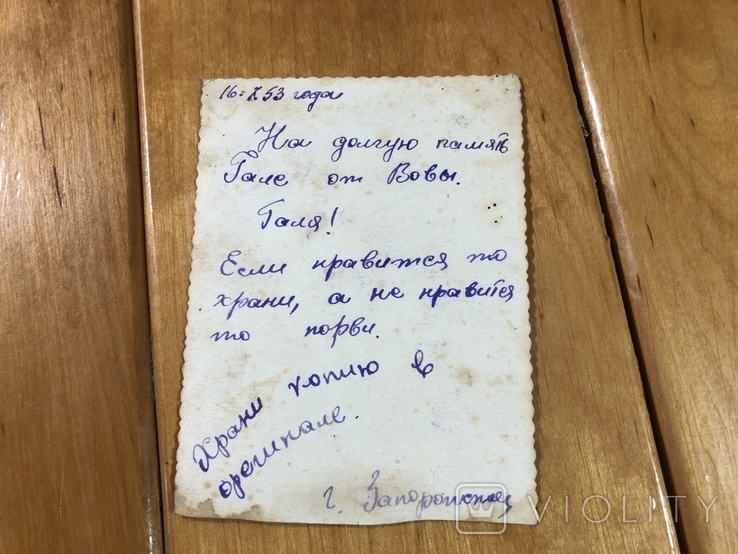 16 X 53 года
На долгую память
Гале от Вовы.
Галя!
Если нравится то
храни, а не нравится
то порви.
Храни копию в
оренинале.
г. Запорожье
VIOLITY